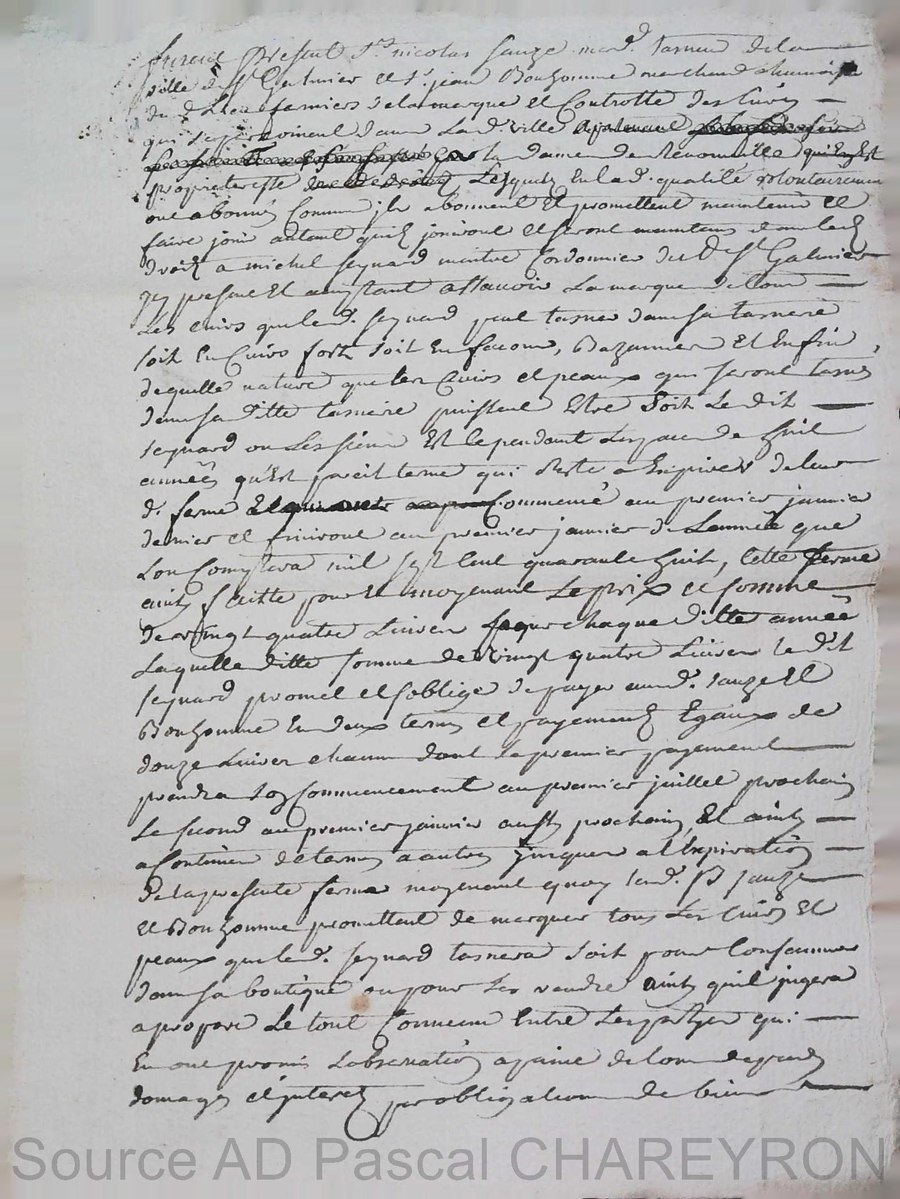 furent present Sr nicolas sauze mard. tasneur de la
ville de St Galmier et Sr jean Bonhomme marchand
du d. Lieu fermiers de la marque et Controlle des Cuirs
qui se dans La d. ville
par la dame de qui en Est
proprieteresse Lesquels En lad. qualité volontairement
ont abonné Comme jls abonnent Et promettent maintenir et
faire jouir autant quils jouiront et seront maintenus dans lesd.
droits a michel seynard maitre Cordonnier du d. St Galmier
jcy present Et acceptant assavoir La marque de tous
Les cuirs que led. seynard peut tasner dans sa tasnerie
soit En Cuirs forts soit En facons, Bazannes Et Enfin
de quelle nature que les Cuirs et peaux qui seront tasnés
dans sa ditte tasnerie puissent Estre Soit Le dit
seynard ou Les siens Et Ce pendant Lespace de huit
années qu'Est pareil terme qui Reste a Expirer de leur
d. ferme Commencé au premier janvier
dernier et finiront au premier janvier de Lannée que
Lon Comptera mil sept Cent quarante huit, Cette ferme
ainsy faitte pour Et moyenant Le prix et somme
de vingt quatre Livres pour chaque ditte année
Laquelle ditte somme de vingt quatre Livres le dit
seynard promet et soblige de payer aux d. sauze Et
Bonhomme En deux termes et payements Egaux de
douze Livres chacun dont Le premier payement
prendra son Commencement au premier juillet prochain
Le second au premier janvier aussy prochain, Et ainsy
a Continuer de termes a autres jusques a l'Expiration
de la presente ferme moyenant quoy lesd. Srs sauze
Et Bonhomme promettent de marquer tous Les Cuirs Et
peaux que led. seynard tasnera soit pour Consommer
dans sa boutique ou pour Les vendre ainsy quil jugera
apropos Le tout Convenu Entre Les parties qui
En ont promis Lobservation a paine de tous depens
domages et jnterets par obligation de biens
Source AD Pascal CHAREYRON